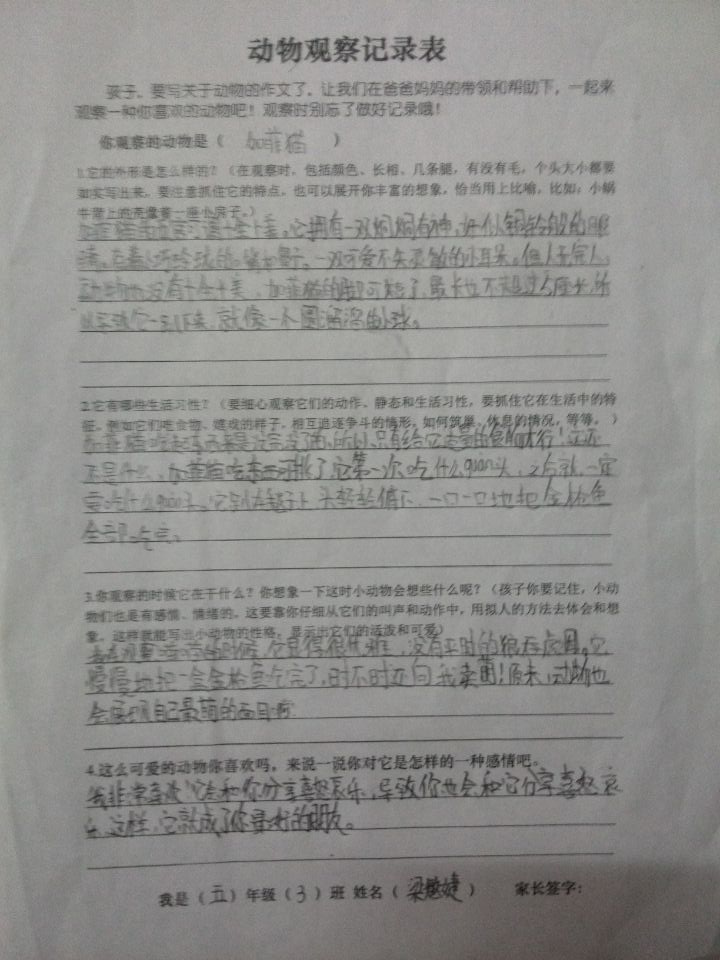 动物观察记录表
孩子、要写关于动物的作文了。让我们在爸爸妈妈的带领和帮助下，一起来
观察一种你喜欢的动物吧！观察时别忘了做好记录哦！
你观察的动物是（ 加菲猫 ）
1.它的外形是怎么样的？（在观察时，包括颜色、长相、几条腿，有没有毛，个头大小都要
如实写出来，要注意抓住它的特点，也可以展开你丰富的想象，恰当用上比喻，比如：小蜗
牛背上的壳像着一座小房子。）
加菲猫的 可谓十全十美。它拥有一双炯炯有神，好似铜铃般的眼
睛。 一双可爱不失灵敏的小耳朵。但人无完人，
动物也没有十全十美，加菲猫的脚可短了，最长也不超过 厘米，所
以 就像一个圆溜溜的小球。
2.它有哪些生活习性？（要细心观察它们的动作、静态和生活习性，要抓住它在生活中的特
征，例如它们吃食物、嬉戏的样子，相互追逐争斗的情形，如何筑巢、休息的情况，等等。）
加菲猫吃起东西来是没完没了的，所以，只有给它定量的食物才行！这还
不是什么，加菲猫吃东西可挑了，它第一次吃什么 头，之后就一定
要吃什么 头。它 头轻轻偏下，一口一口地把 鱼
全部吃完。
3.你观察的时候它在干什么？你想象一下这时小动物会想些什么呢？（孩子你要记住，小动
物们也是有感情、情绪的。这要靠你仔细从它们的叫声和动作中，用拟人的方法去体会和想
象。这样就能写出小动物的性格，显示出它们的活泼和可爱）
我在观察 的时候，它显得很优雅，没有平时的狼吞虎咽。它
慢慢地把一盒金枪鱼吃完了，时不时还向我卖萌！原来，动物也
会展现自己最萌的面目啊
4.这么可爱的动物你喜欢吗，来说一说你对它是怎样的一种感情吧。
我非常喜欢，它会和你分享喜怒哀乐，导致你也会和它分享喜怒哀
乐，这样，它就成了你最好的朋友。
我是（五）年级（3）班 姓名（ 梁 婕 ） 家长签字：